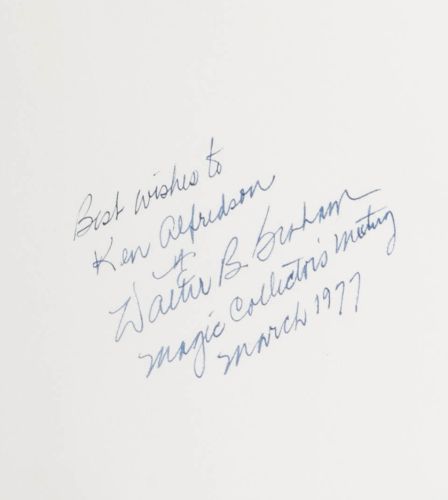 Best wishes to
Ken Alfredson
Walter B. Graham
Magic Collector's Meeting
March 1977